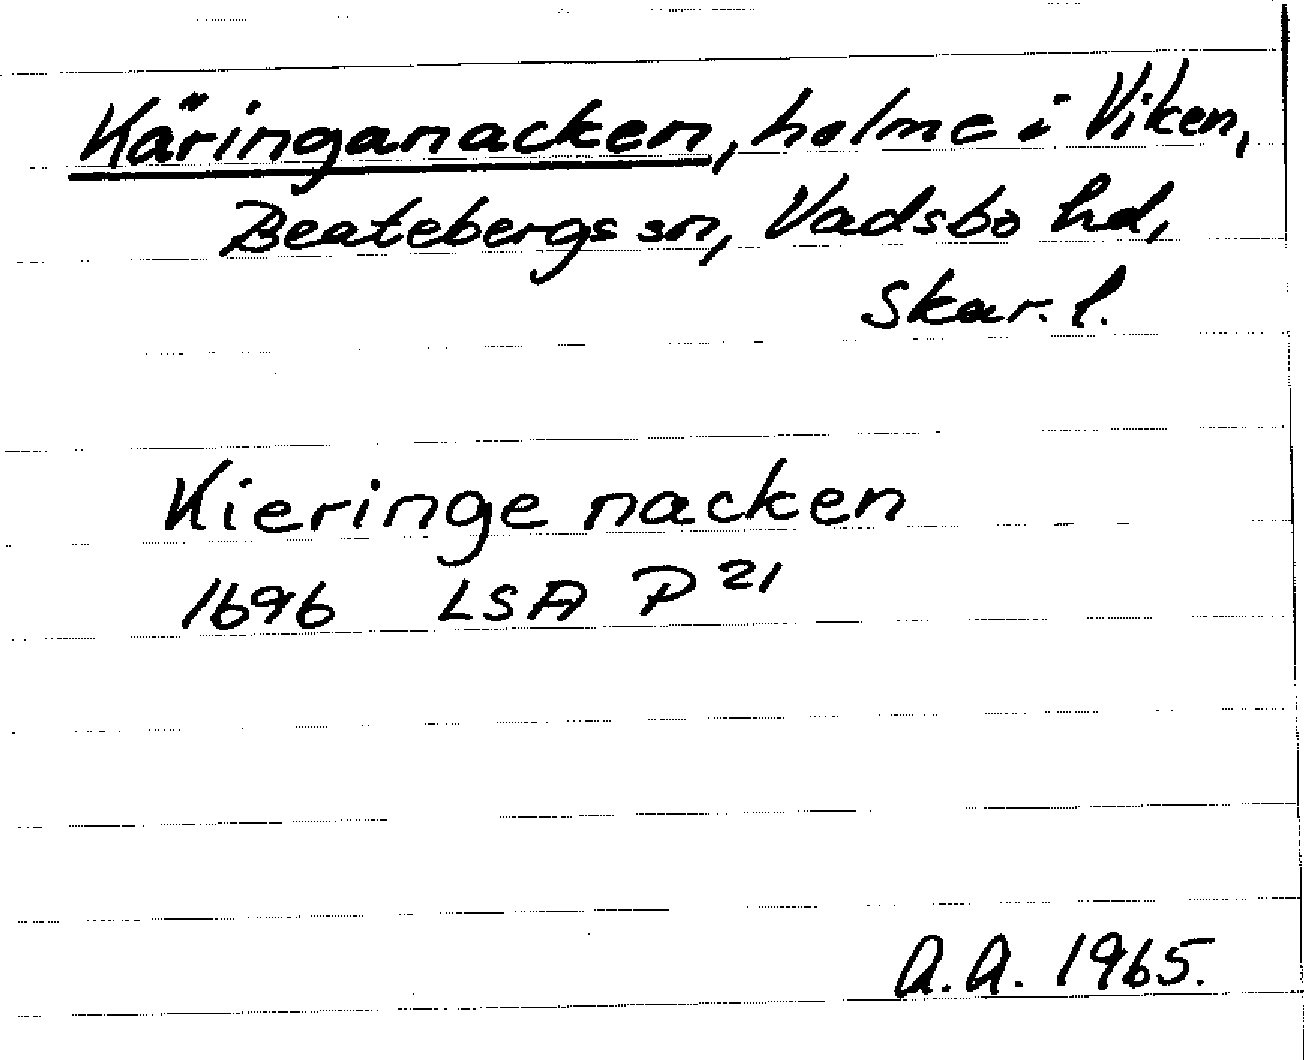 Käringanacken, holme i Viken,
Beatebergs sn, Vadsbo hd,
Skar. l.
Kieringe nacken
1696 LSA P 21
A.A. 1965.